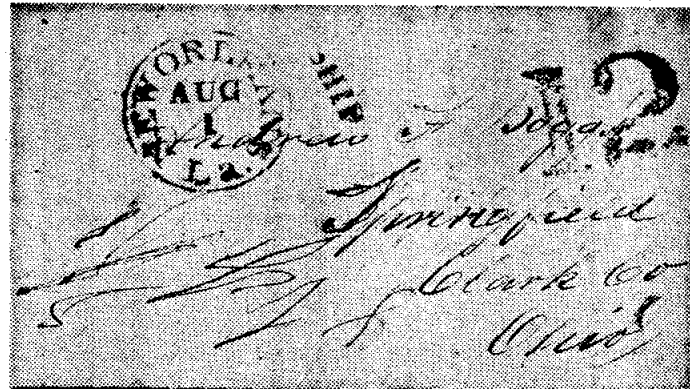 NEW ORLEANS
AUG
1
La.
SHIP
12
Andrew F
Springfield
Clark Co
Ohio